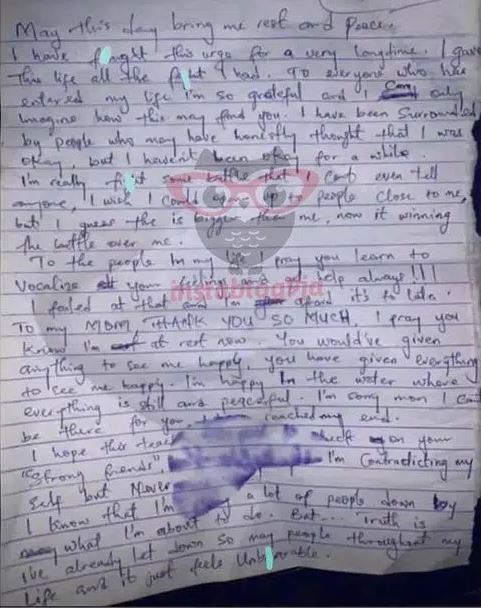 May this day bring me rest and peace.
I have fought this urge for a very longtime. I gave
This life all the I had. To everyone who has
entered my life I'm so grateful and I can only
imagine how this may find you. I have been surrounded
by people who may have honestly thought that I was
okay, but I haven't been okay for a while.
I'm really some battle that I can't even tell
anyone, I wish I could open up to people close to me,
but I guess the is bigger than me, now it winning
the battle over me.
To the people in my life I pray you learn to
Vocalize your feelings and help always!!!
I failed at that and I'm afraid it's to late.
To my MOM, THANK YOU SO MUCH, I pray you
know I'm at rest now. You would've given
anything to see me happy, you have given everything
to see me happy. I'm happy In the water where
everything is still and peaceful. I'm sorry mom I can't
be there for you, reached my end.
I hope this check on your
"Strong friends", I'm Contradicting my
self but Never
I know that I'm a lot of people down by
what I'm about to do. But... Truth is
I've already let down so many people throughout my
life and it just feels Unbearable.
instablog9ja